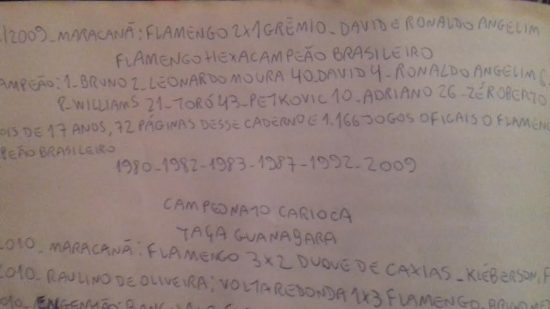 /2009_MARACANÃ: FLAMENGO 2X1 GRÊMIO_DAVID E RONALDO ANGELIM
FLAMENGO HEXACAMPEÃO BRASILEIRO
AMPEÃO: 1_BRUNO 2_LEONARDO MOURA 40_DAVID 4_RONALDO ANGELIM 6
R_WILLIAMS 21_TORÓ 43_PETKOVIC 10_ADRIANO 26_ZÉ ROBERTO
OIS DE 17 ANOS, 72 PÁGINAS DESSE CADERNO E 1.166 JOGOS OFICAIS O FLAMEN
PEÃO BRASILEIRO
1980_1982_1983_1987_1992_2009
CAMPEONATO CARIOCA
TAÇA GUANABARA
2010_MARACANÃ: FLAMENGO 3X2 DUQUE DE CAXIAS_KLÉBERSON, F
2010_RAULINO DE OLIVEIRA: VOLTA REDONDA 1X3 FLAMENGO_
010_ENGENHÃO: